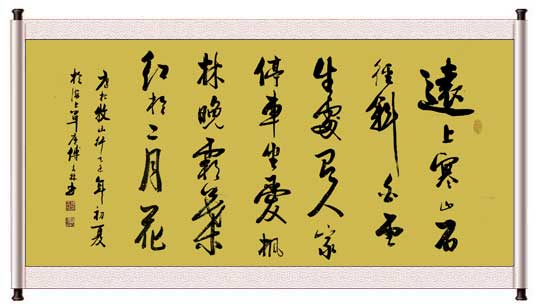 遠上寒山石
徑斜白雲
生處有人家
停車坐愛楓
林晚霜葉
紅於二月花
唐杜牧山行 年初夏
於海上